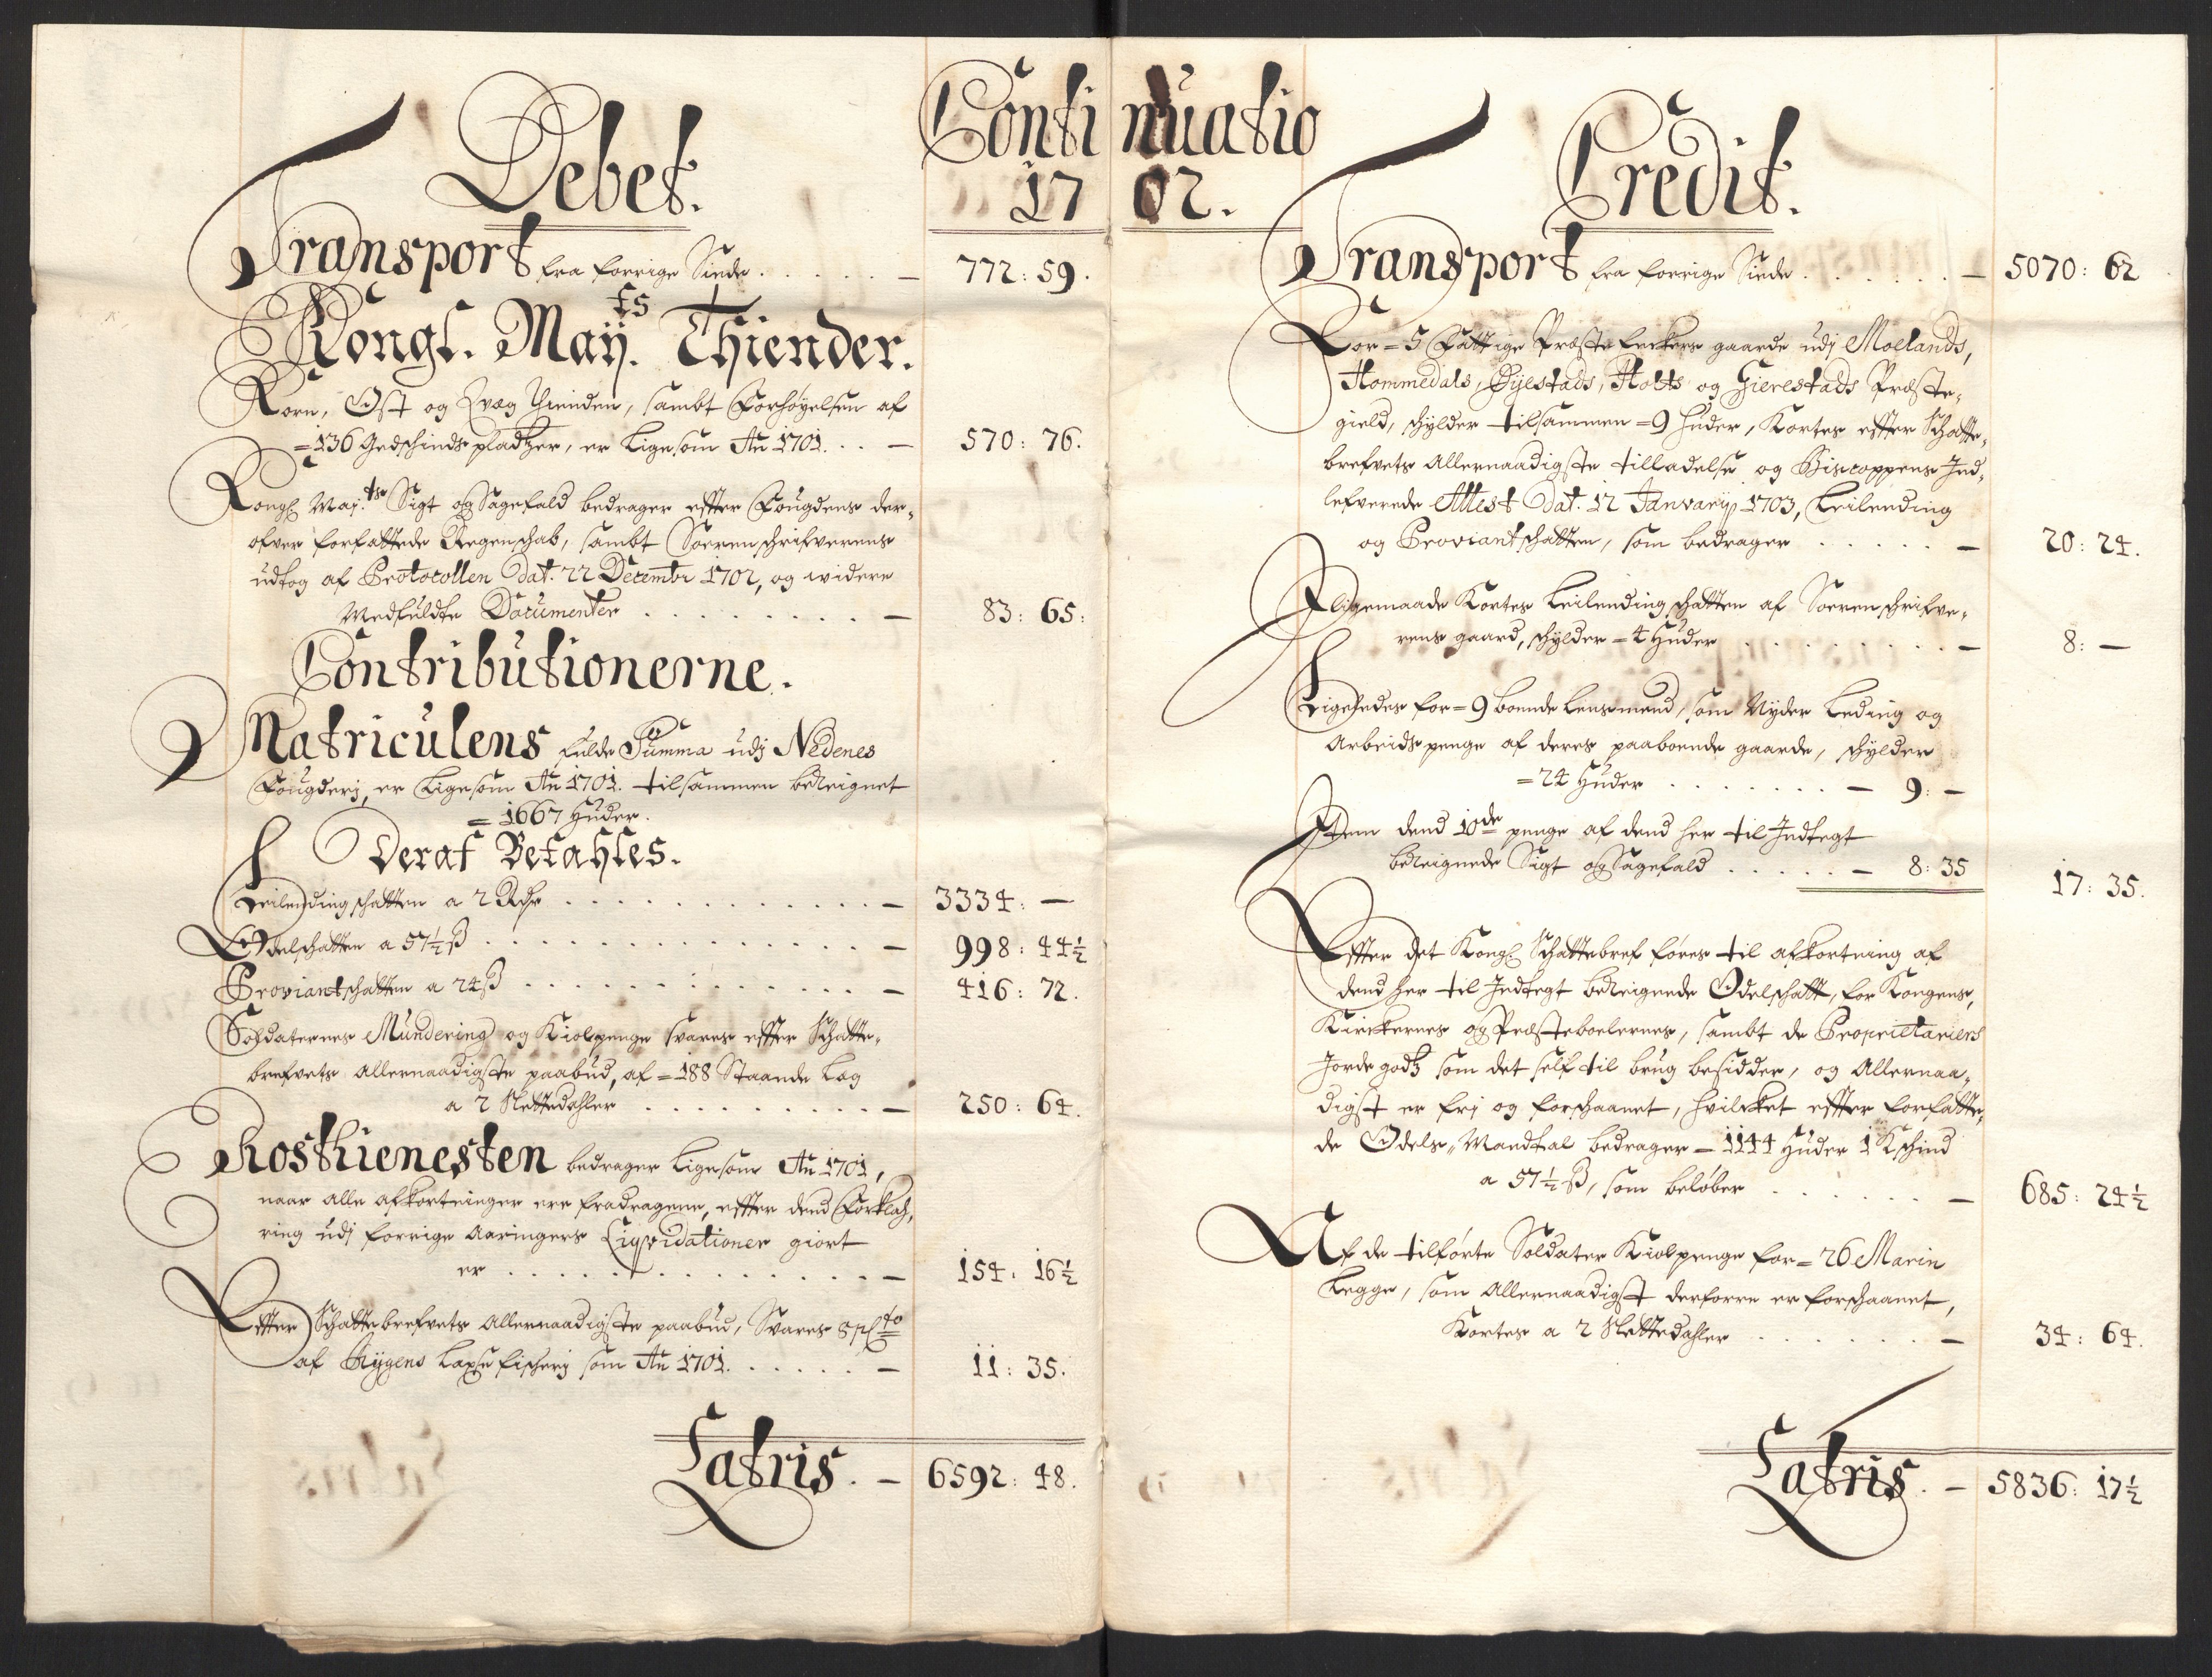 Continuatio
1702.
Debet.
Transport fra forrige Siede . . . . . — 772: 59.
Kongl. Maÿ.ts Thiender.
Korn, Ost og Qvæg Thienden, sambt Forhøyelsen af
=136 Gedschinds pladtzer, er Ligesom Aũ 1701. . . — 570: 76.
Kongl Maj.ts Sigt og Sagefald bedrager effter Fougdens der,
ofver forfattede Regenschab, sambt Sorenschrifverens
udtog af Protocollen Dat. 22 Decembr 1702, og widere
Medfuldte Documenter . . . . . . — 83: 65:
Contributionerne.
Matriculens fulde Summa udj Nedenes
Fougderj, er Ligesom Aũ 1701. tilsammen bereignet
= 1667 Huder.
Deraf Betahles.
Leilending schatten a 2 Rdr . . . . . . . — 3334: —
Odelschatten a 57½ β . . . . . . . — 998: 44½
Proviantschatten a 24 β . . . . . . . — 416: 72.
Soldaternes Mundering og Kiolpenge svares effter Schatte,
brefvets allernaadigste paabud, af =188 Staande Lag
a 2 Slettedahler . . . . . . . — 250: 64.
Rosthienesten bedrager Ligesom Aũ 1701,
naar alle afkortninger ere fradragene, effter dend Forklah,
ring udj forrige Aaringers Liqvidationer giort
er . . . . . . . — 154: 16½
Effter Schattebrefvets allernaadigste paabud, Svares
af Rygens Laxefischerj som Aũ 1701. . . . . — 11: 35.
Latris. — 6592: 48.
Credit.
Transport fra forrige Siede . . . . . — 5070: 62
For =5 Fattige Præste Enkers gaarde udj Moelands,
Hommedals, Øÿestads, Holts og Gierestads Præste,
gield, schylder tilsammen =9 huder, Kortes effter Schatte,
brefvets Allernaadigste tilladelse og Biscoppens Ind,
lefverede Attest Dat. 12 Januarij 1703, Leilending
og Proviantschatten, som bedrager . . . . . — 20: 24.
Iligemaade Kortes Leilending schatten af Sorenschrifve,
rens gaard, schylder =4 Huder . . . . . . — 8: —
Ligeledes for =9 boende Lensmend, som Nyder Leding og
Arbeids penge af deres paaboende gaarde, schylder
=24 Huder . . . . . . . — 9: —
Item dend 10de penge af dend her til Indtegt
bereignede Sigt og Sagefald . . . . . — 8: 35
17: 35.
Effter det Kongl Schattebref føres til afkortning af
dend her til Indtegt bereignede Odelschatt, for Kongens,
Kirckernes og Præsteboelernes, sambt de Proprietariers
Jordegodtz som det self til brug besidder, og Allernaa,
digst er frj og forschaanet, hvilcket effter forfatte,
de Odels, Mandtal bedrager =1144 Huder 1 Kschind
a 57½ β, som beløber . . . . . . — 685: 24½
Af de tilførte Soldater Kiolpenge for =26 Marin
Legge, som Allernaadigst derforre er forschaanet,
Kortes a 2 Slettedahler . . . . . . — 34: 64.
Latris. — 5836: 17½